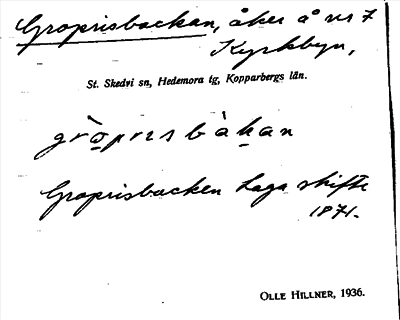 Groprisbackan, åker å nr 7
Kyrkbyn,
St. Skedvi sn, Hedemora tg, Kopparbergs län.
gròprısbàkan
Groprisbacken Laga skifte
1871.
OLLE HILLNER, 1936.